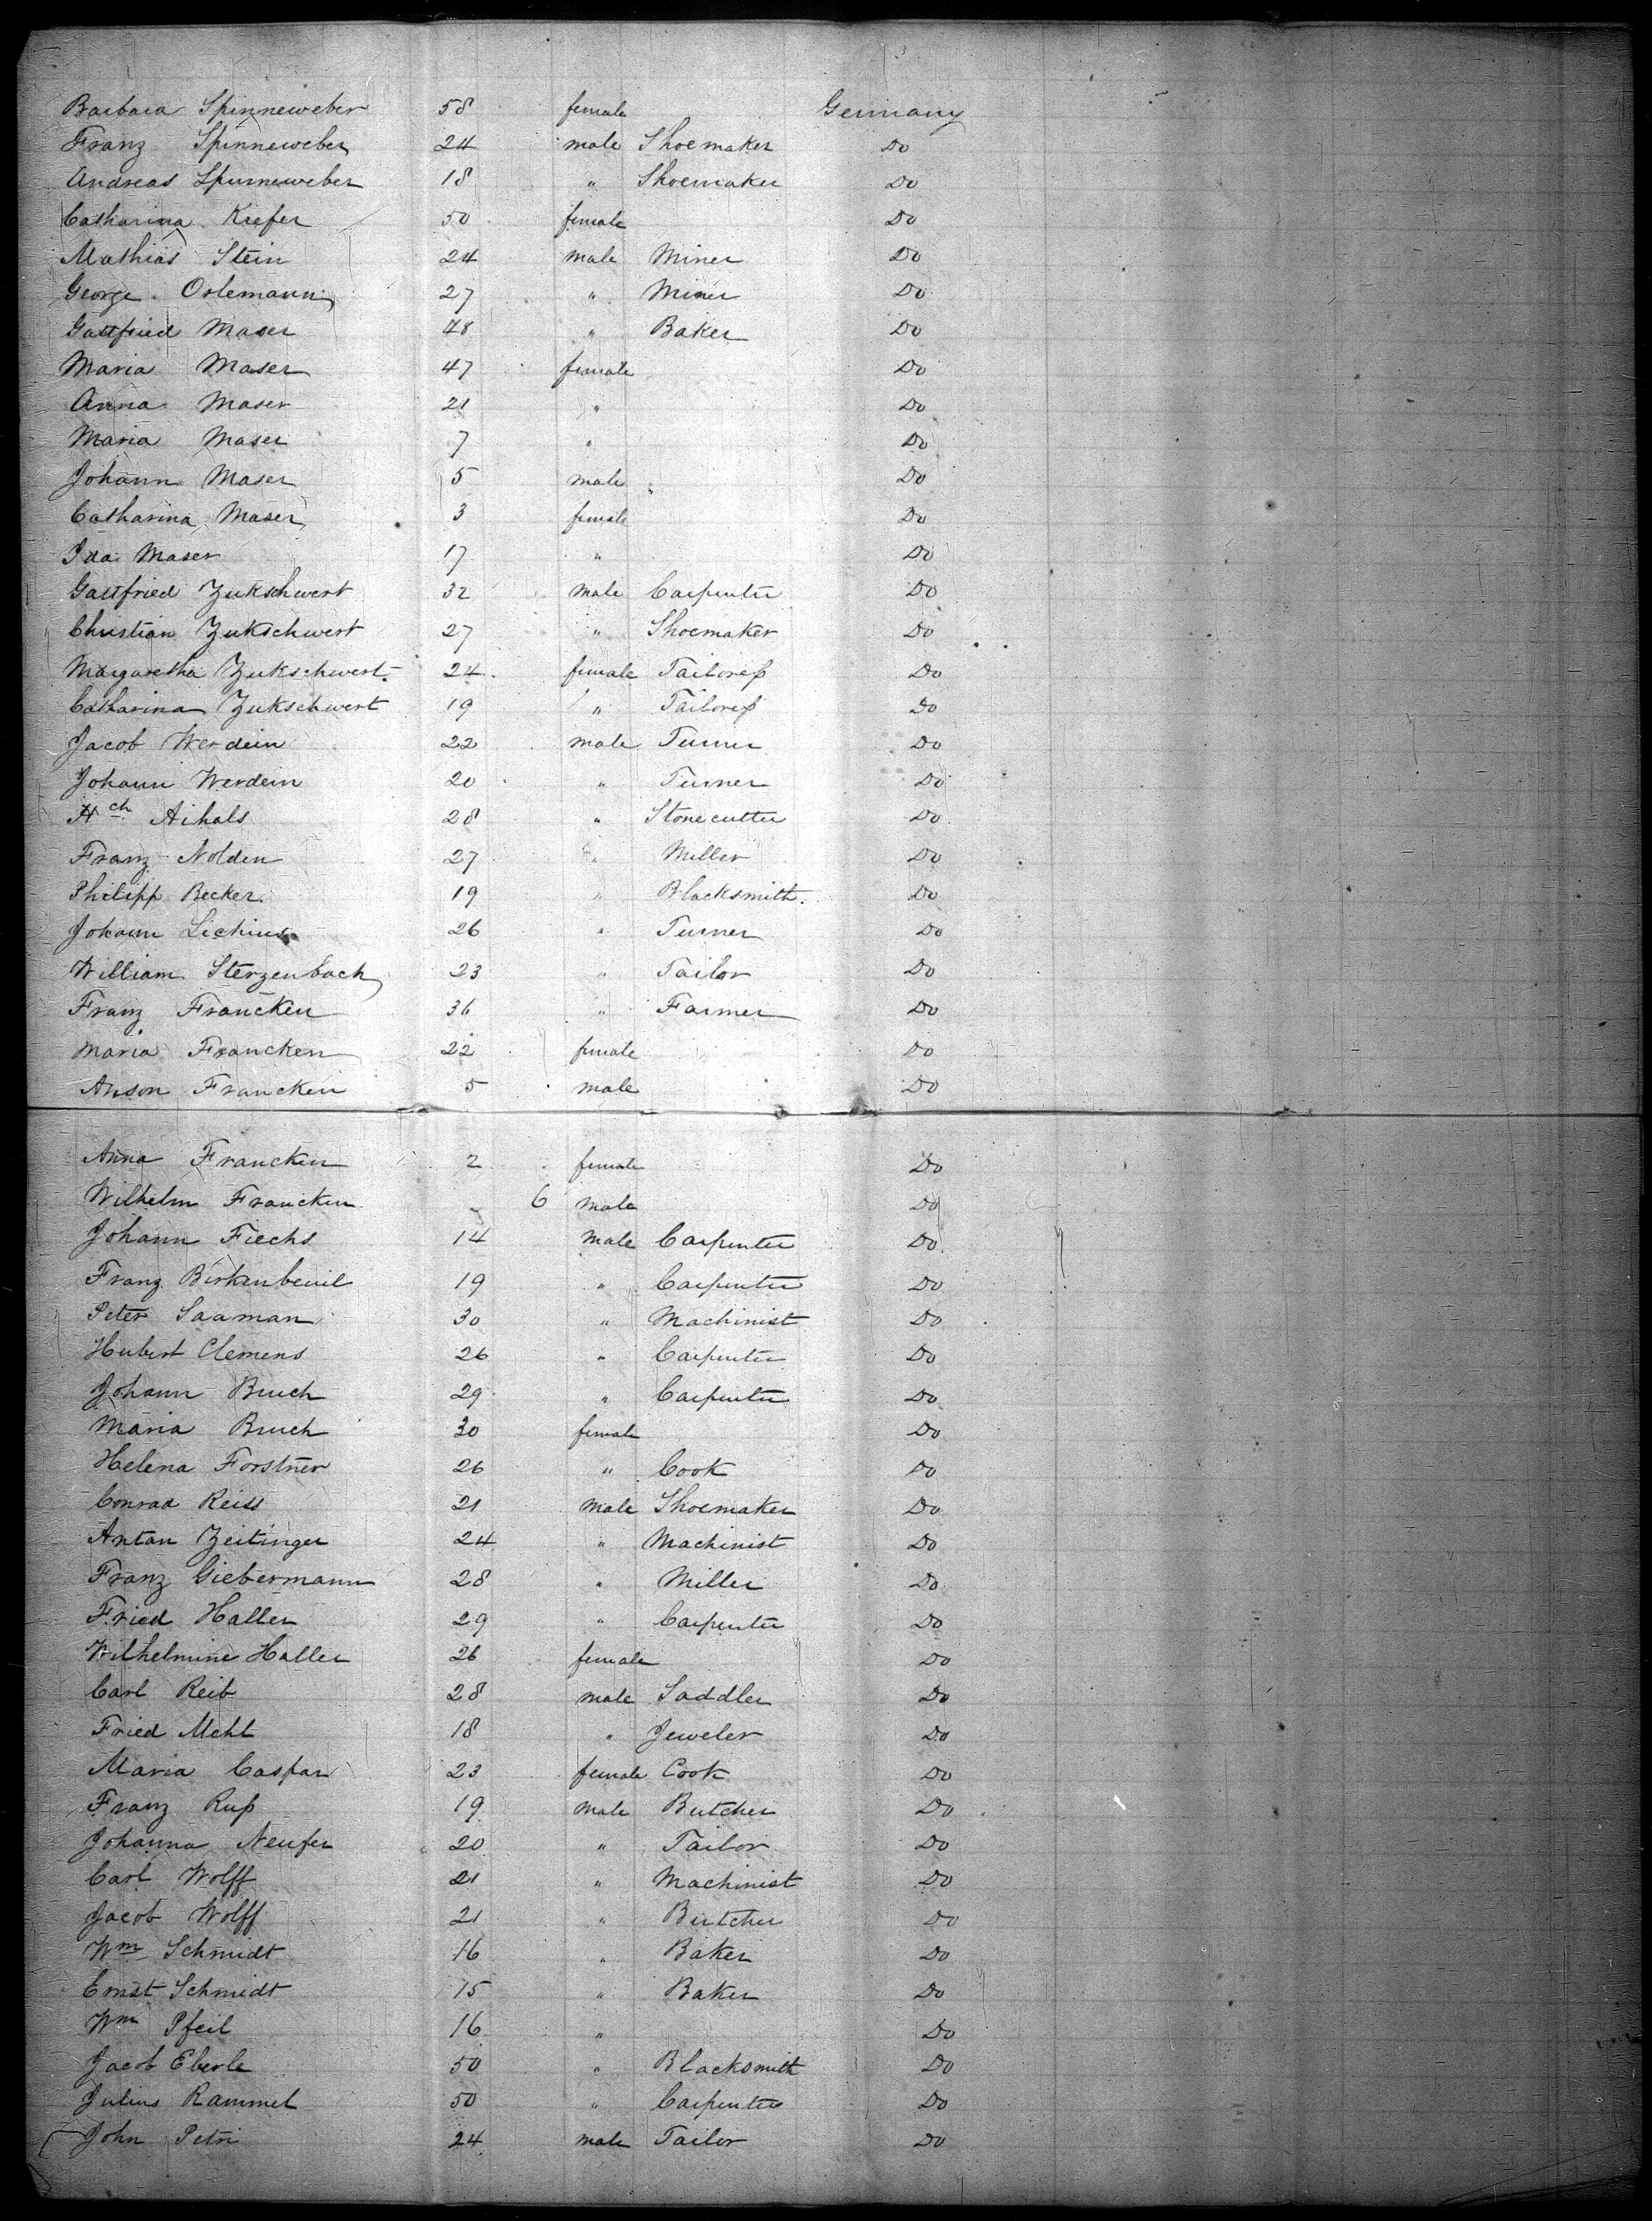 Barbara Spinneweber 58 female Germany
Franz Spinneweber 24 male Shoemaker Do
Andreas Spinneweber 18 " Shoemaker Do
Catharina Kiefer 50 female Do
Mathias Stein 24 male Miner Do
George Orlemann 27 " Miner Do
Gottfried Maser 48 " Baker Do
Maria Maser 47 female Do
Anna Maser 21 " Do
Maria Maser 7 " Do
Johann Maser 5 male Do
Catharina Maser 3 female Do
Ida Maser 17 " Do
Gottfried Zukschwert 32 male Carpenter Do
Christian Zukschwert 27 " Shoemaker Do
Margaretha Zukschwert 24 female Tailoreß Do
Catharina Zukschwert 19 " Tailoreß Do
Jacob Werdein 22 male Turner Do
Johann Werdein 20 " Turner Do
Hch Aihals 28 " Stonecutter Do
Franz Nolden 27 " Miller Do
Philipp Becker 19 " Blacksmith Do
Johann Lichius 26 " Turner Do
William Sterzenbach 23 " Tailor Do
Franz Francken 36 " Farmer Do
Maria Francken 22 female Do
Anson Francken 5 male Do
Anna Francken 2 female Do
Wilhelm Francken - 6 male Do
Johann Fiechs 14 male Carpenter Do
Franz Birkenbeuil 19 " Carpenter Do
Peter Saaman 30 " Machinist Do
Hubert Clemens 26 " Carpenter Do
Johann Bruch 29 " Carpenter Do
Maria Bruch 30 female Do
Helena Forstner 26 " Cook Do
Conrad Reiss 21 male Shoemaker Do
Antan Zeitinger 24 " Machinist Do
Franz Giebermann 28 " Miller Do
Fried Haller 29 " Carpenter Do
Wilhelmine Haller 26 female Do
Carl Reib 28 male Saddler Do
Fried Mehl 18 " Jeweler Do
Maria Caspar 23 female Cook Do
Franz Ruß 19 male Butcher Do
Johanna Neufer 20 " Tailor Do
Carl Wolff 21 " Machinist Do
Jacob Wolff 21 " Butcher Do
Wm Schmidt 16 " Baker Do
Ernst Schmidt 15 " Baker Do
Wm Pfeil 16 " Do
Jacob Eberle 50 " Blacksmith Do
Julius Rammel 50 " Carpenter Do
John Petri 24 male Tailor Do